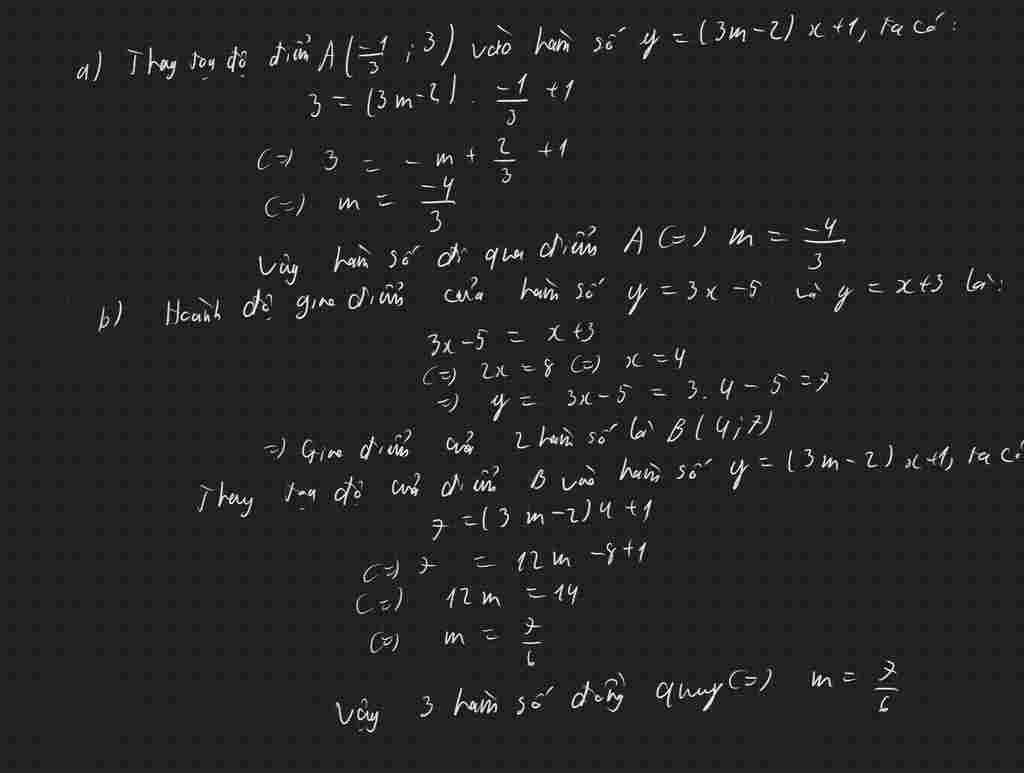 a) Thay toạ độ điểm A(-1/3 ; 3) vào hàm số y = (3m-2) x+1, ta có:
3 = (3m-2) . -1/3 +1
(=) 3 = - m + 2/3 +1
(=) m = -4/3
Vậy hàm số đi qua điểm A (=) m = -4/3
b) Hoành độ giao điểm của hàm số y = 3x-5 và y = x+3 là:
3x-5 = x+3
(=) 2x = 8 (=) x = 4
=) y = 3x-5 = 3.4-5 = 7
=) Giao điểm của 2 hàm số là B(4;7)
Thay toạ độ của điểm B vào hàm số y = (3m-2) x+1, ta có
7 = (3m-2)4+1
(=) 7 = 12m -8+1
(=) 12m = 14
(=) m = 7/6
Vậy 3 hàm số đồng quy (=) m = 7/6